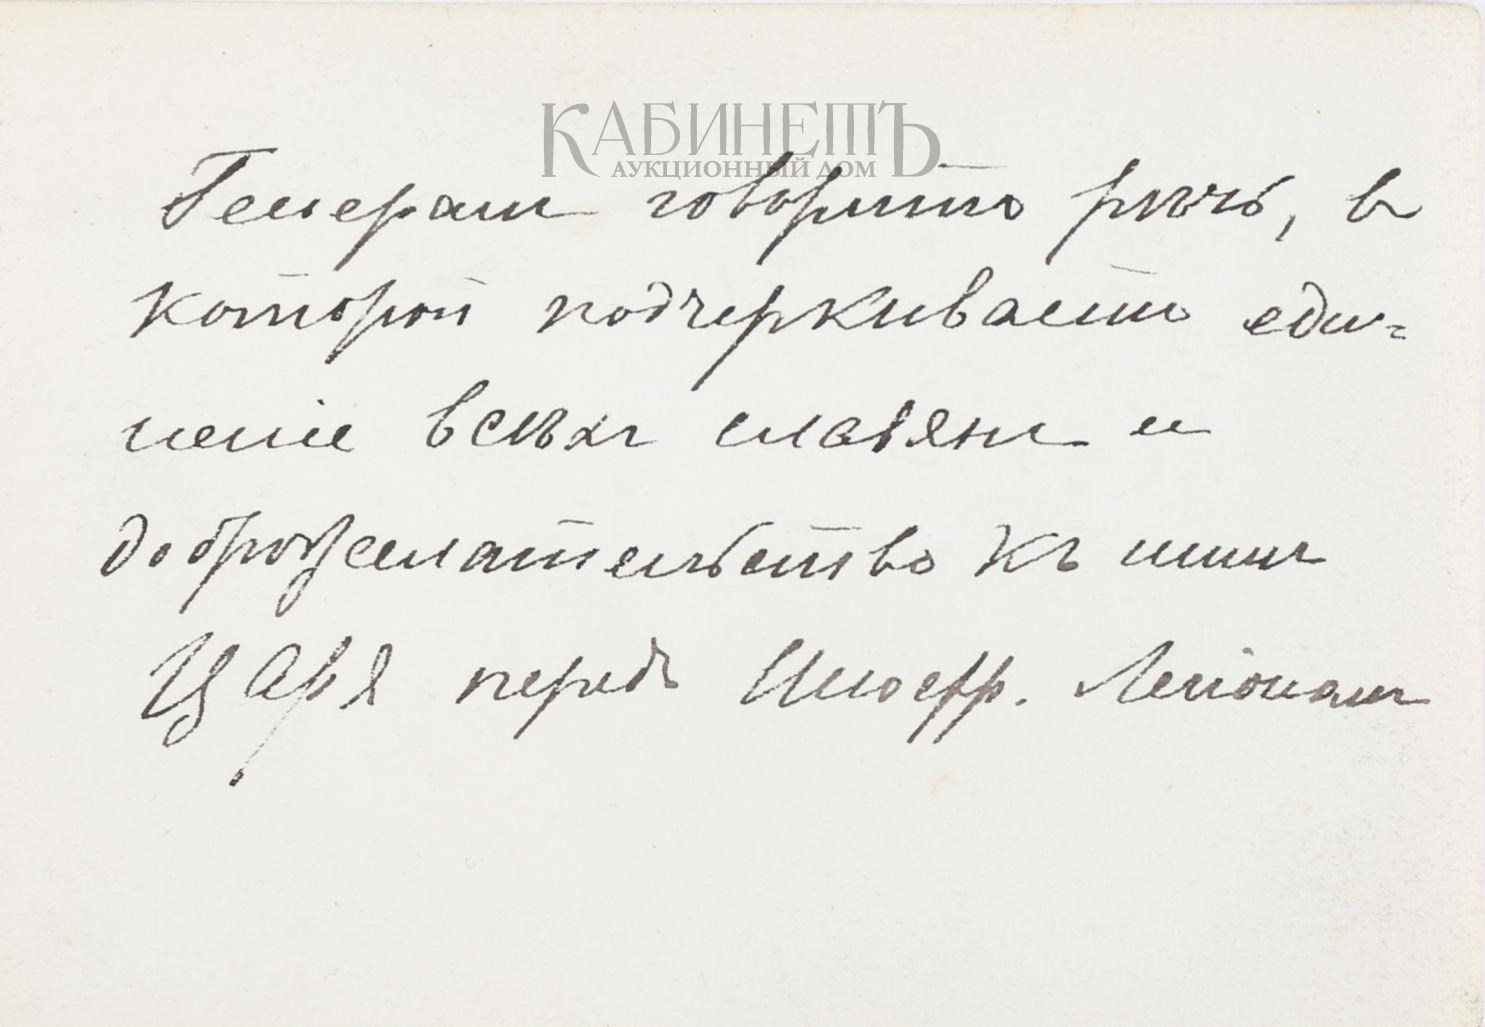 КАБИНЕТЪ
АУКЦИОННЫЙ ДОМ
Генералъ говоритъ рѣчь, въ
которой подчеркиваетъ еди-
неніе всѣхъ славянъ и
доброжелательство къ нимъ
Царя передъ Легіономъ